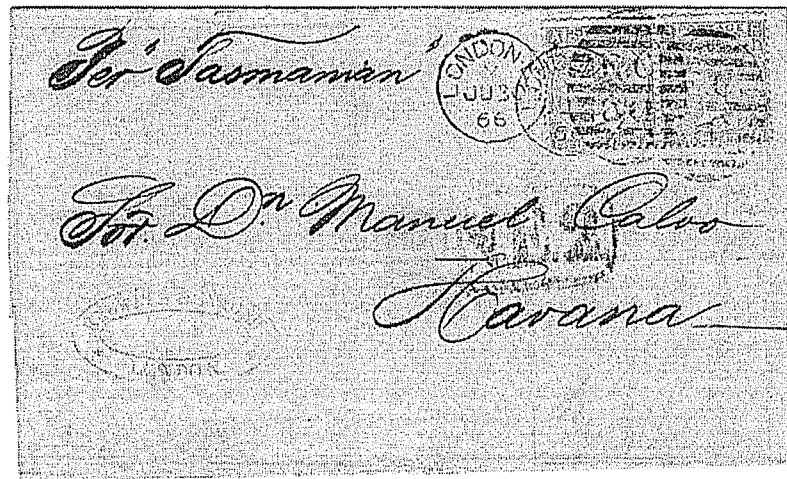 Per "Tasmanian"
LONDON
JU
66
Sor. Dn Manuel Calvo
Havana
LONDON